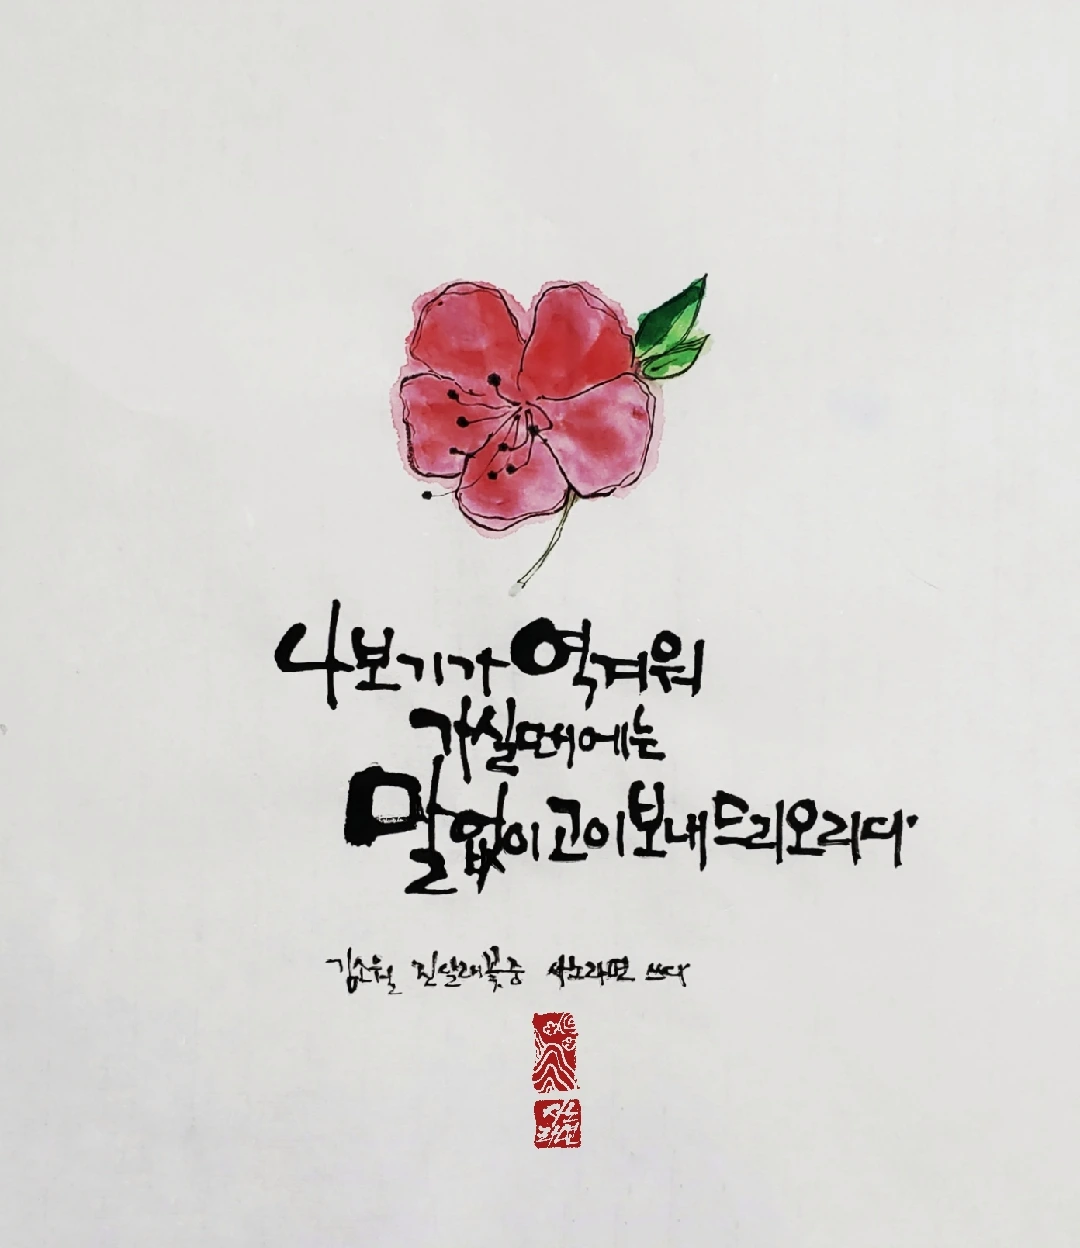 나 보기가 역겨워
가실때에는
말없이 고이 보내 드리오리다
김소월 진달래꽃중 사노라면 쓰다
사노
라면